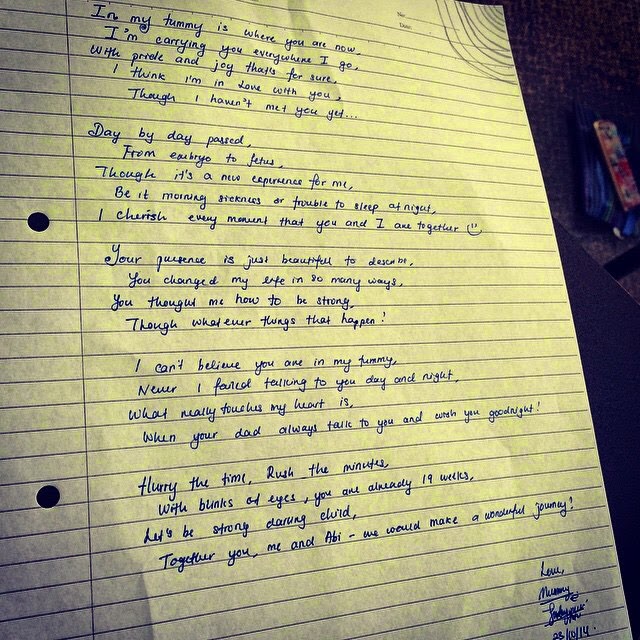 No:
Date:
In my tummy is where you are now
I'm carrying you everywhere I go,
With pride and joy that's for sure,
I think I'm in love with you,
Though I haven't met you yet...
Day by day passed,
From embryo to fetus,
Though it's a new experience for me,
Be it morning sickness or trouble to sleep at night,
I cherish every moment that you and I are together
Your presence is just beautiful to describe,
You changed my life in so many ways,
You thought me how to be strong,
Though whatever things that happen!
I can't believe you are in my tummy,
Never I failed talking to you day and night,
What really touches my heart is,
When your dad always talk to you and wish you goodnight!
Hurry the time, Rush the minutes,
With blinks of eyes, you are already 19 weeks,
Let's be strong darling child,
Together you, me and Abi - we would make a wonderful journey!
Love,
Mummy
23/10/14